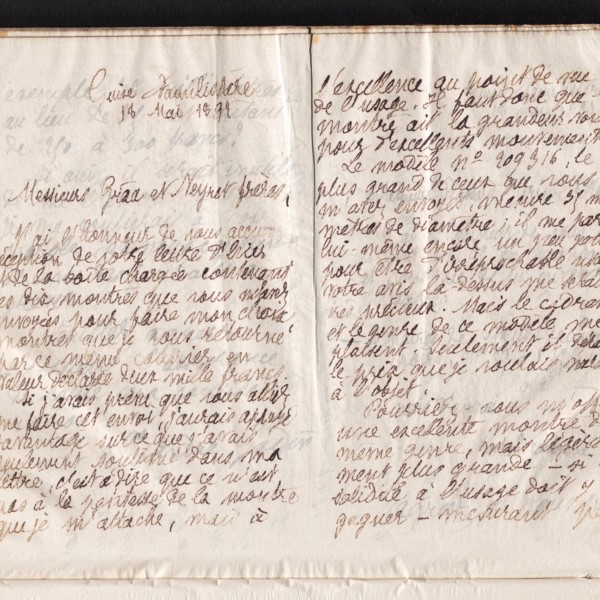 Guise Familistère
18 Mai 1891
Messieurs et Neyret frères,
J'ai l'honneur de vous accuser
réception de votre lettre d'hier
et de la boîte chargée contenant
les dix montres que vous m'avez
envoyées pour faire mon choix,
montres que je vous retourne
par ce même courrier en
valeur déclarée deux mille francs.
Si j'avais prévu que vous alliez
me faire cet envoi j'aurais appuyé
davantage sur ce que j'avais
seulement dans ma
lettre, c'est à dire que ce n'est
pas à la petitesse de la montre
que je m'attache, mais à
l'excellence au point de vue
de l'usage. Il faut donc que
montre ait la grandeur
pour d'excellents mouvements
Le modèle n° 209316, le
plus grand de ceux que vous
m'avez envoyés, mesure 35
mètres de diamètre ; il me
lui-même encore un peu
pour être d'irréprochable
votre avis là-dessus me
précieux. Mais le
et le genre de ce modèle me
plaisent. Seulement il
le prix que je voulais
à l'objet.
Pourriez-vous
une excellente montre
même genre, mais
ment plus grande — si
solidité à l'usage doit y
gagner — mesurant